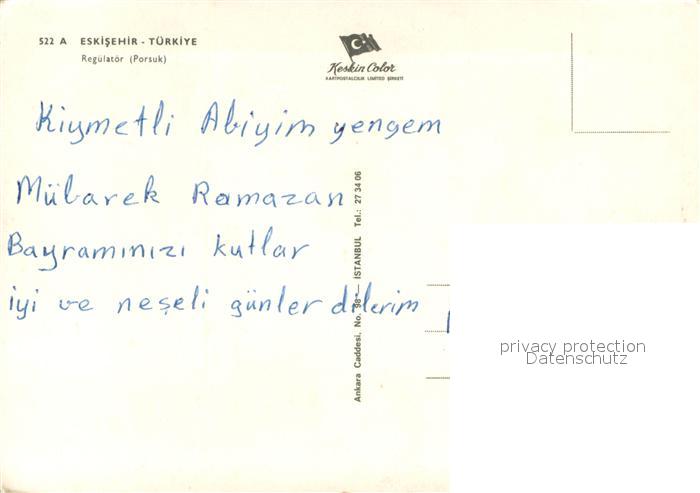 522 A ESKİŞEHİR - TÜRKİYE
Regülatör (Porsuk)
Keskin Color
KARTPOSTALCILIK LIMITED ŞİRKETİ
Kiymetli Abiyim yengem
Mübarek Ramazan
Bayramınızı kutlar
iyi ve neşeli günler dilerim
Ankara Caddesi, No. 98 — İSTANBUL Tel.: 27 34 06
privacy protection
Datenschutz